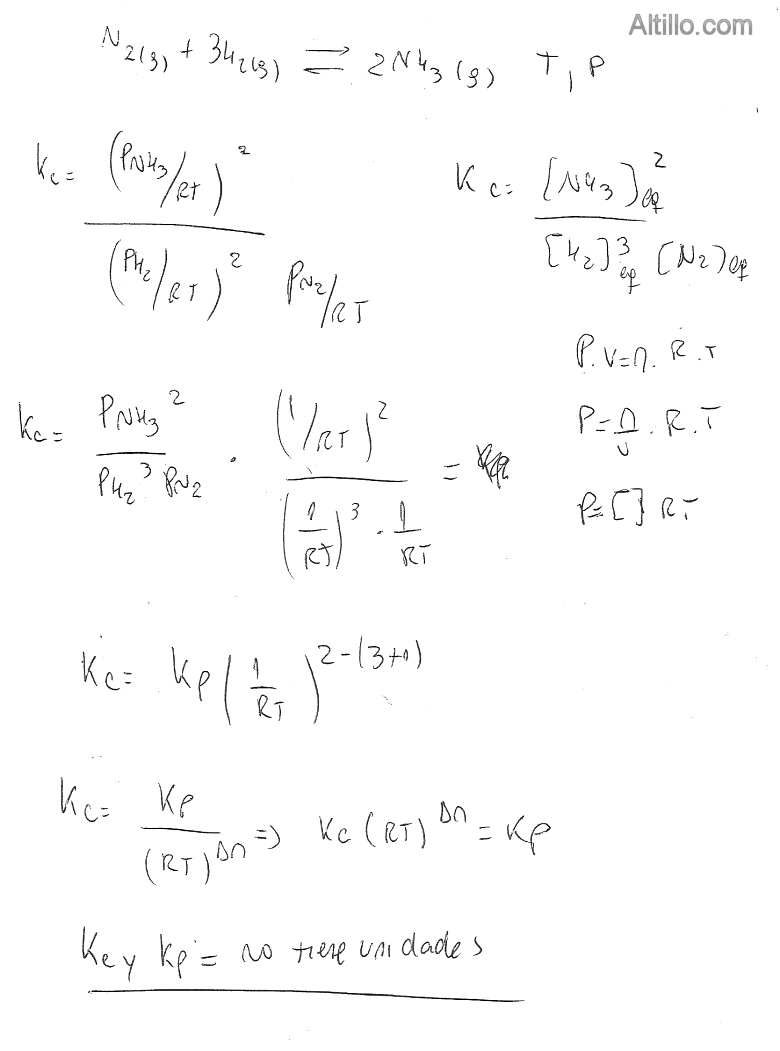 Altillo.com
N2(g) + 3H2(g) ⇌ 2NH3(g) T, P
Kc= (PNH3/RT)^2 / (PH2/RT)^2 PN2/RT
Kc= [NH3]eq^2 / [H2]^3eq [N2]eq
P.V=n.R.T
P=n/v.R.T
P=[]RT
Kc= PNH3^2 / PH2^3 PN2 . (1/RT)^2 / (1/RT)^3 . 1/RT =
Kc= Kp(1/RT)^2-(3+1)
Kc= Kp/(RT)^Δn => Kc(RT)^Δn = Kp
Kc y Kp = no tiene unidades